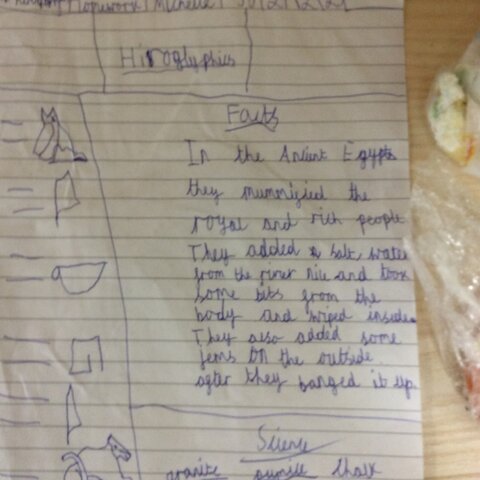 Homework Michelle
Hiroglyphics
Facts
In the Ancient Egypts
they mummified the
royal and rich people
They added salt, water
from the river nile and took
some bits from the
body and wiped inside.
They also added some
jems on the outside.
after they banged it up
Science
granite pumice Chalk